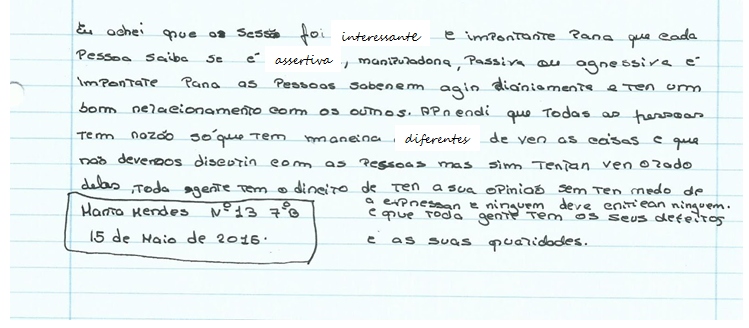 Eu achei que as sessõ foi interessante e importante para que cada
Pessoa saiba se é assertiva, manipuladora, Passiva ou agressiva é
importate Para as Pessoas saberem agir diariamente e ter um
bom relacionamento com os outros. APrendi que todas as pessoas
tem razão só que tem maneira diferentes de ver as coisas e que
nós devemos discutir com as Pessoas mas sim Tentar ver o lado
delas, toda agente tem o direito de ter a sua opinião sem ter medo de
a expressar e ninguem deve criticar ninguem.
e que toda gente tem os seus defeitos
e as suas qualidades.
Marta Mendes Nº 13 7ºB
15 de Maio de 2015.